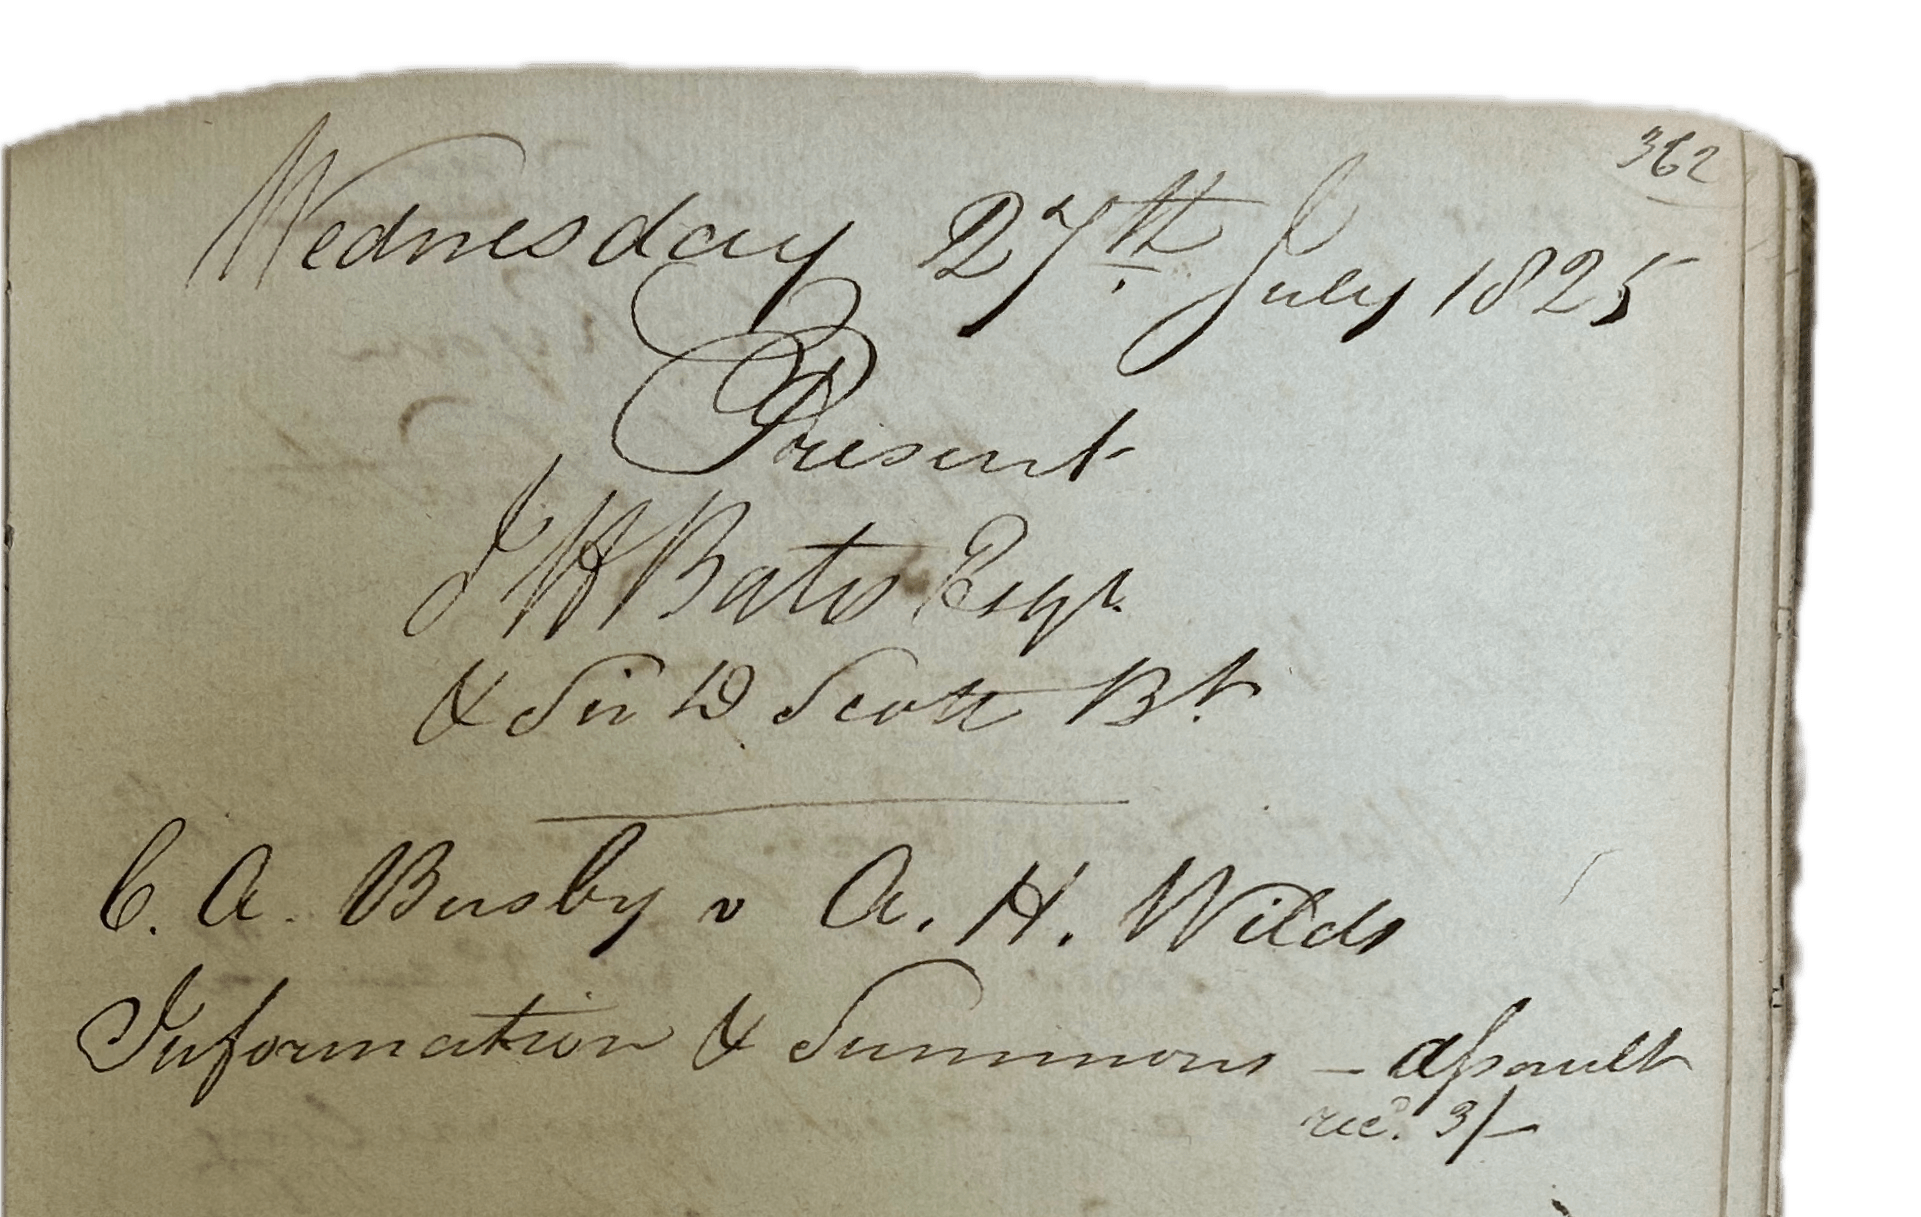 362
Wednesday 27th July 1825
Present
J H Bates Esqr.
& Sir D Scott Bt
C. A. Busby v A. H. Wilds
Information & Summons — assault
recd. 3/-